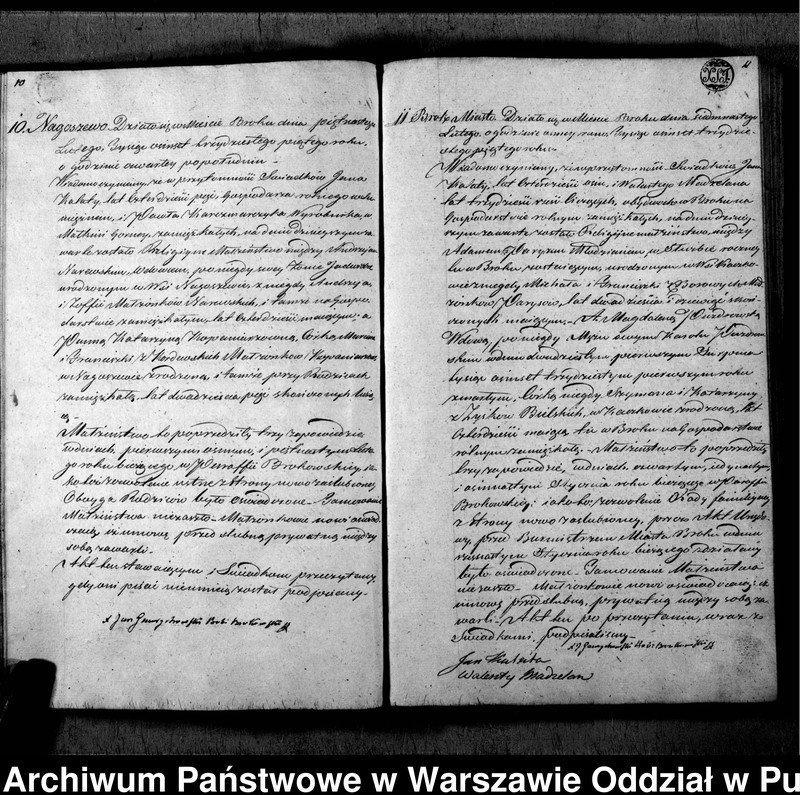 10
10. Nagoszewo. Działo się w Mieście Broku dnia piętnastego
Lutego, Tysiąc osimset trzydziestego piątego roku,
o godzinie czwartey popołudniu.—
Wiadomo czynimy, że w przytomności Świadków Jana
Kalaty, lat czterdzieści pięć, Gospodarza rolnego
i Pawła Karczmarczyka Wyrobnika, w
Małkini Gorney, zamieszkałych, na dniu dzisieyszym za-
warte zostało Religiyne Małżeństwo między Andrzejem
Narewskim, Wdowcem, po niegdy swey Żonie
urodzonym w Wsi Nagoszewie, z niegdy Andrzeja
i Zoffii Małżonków Narewskich, i tamże na Gospo-
darstwie zamieszkałym, lat czterdzieści maiącym; a
Panną Katarzyną Córką Marcina
i Franciszki z Małżonków
w Nagoszewie zrodzoną, i tamże przy Rodzicach
zamieszkałą, lat dwadzieścia pięć skończonych maią-
cą.—
Małżeństwo to poprzedziły trzy zapowiedzie
w dniach, pierwszym, osmym, i piętnastym Lute-
go roku bieżącego w Paraffii Brokowskiey, ia-
ko też zezwolenie ustne z strony nowozaślubioney,
Oboyga Rodziców było oświadczone.— Tamowanie
Małżeństwa niezaszło.— Małżonkowie nowi oświad-
czaią, iż umowę przedślubną prywatną między
sobą zawarli.—
Akt ten stawaiącym i Świadkom przeczytany,
gdy oni pisać nieumieią został podpisany.—
X Jan
11
11 Brok Miasto. Działo się w Mieście Broku dnia siedmnastego
Lutego, o godzinie osmey rano, Tysiąc osimset trzydzie-
stego piątego roku.—
Wiadomo czynimy, że w przytomności Świadków Jana
Kalaty, lat czterdzieści osim, i Walentego Madzelana
lat trzydzieści liczących, obydwóch w Broku na
Gospodarstwie rolnym zamieszkałych, na dniu dzisiey-
szym zawarte zostało Religiyne małżeństwo między
Adamem Parysem Młodzianem, w Służbie roczney
tu w Broku zostaiącym, urodzonym w Wsi
z niegdy Michała i Franciszki Mał-
żonków Parysów, lat dwadzieścia i dziewięć skoń-
czonych maiącym.— A Magdaleną
Wdową, po niegdy Mężu swym Karolu
w dniu dwudziestym pierwszym Sierpnia
tysiąc osimset trzydziestym pierwszym roku
zmarłym, Córką niegdy Szymona i Katarzyny
z Zysków Bielskich, w zrodzoną, lat
czterdzieści maiącą, tu w Broku na Gospodarstwie
rolnym zamieszkałą.— Małżeństwo to poprzedziły
trzy zapowiedzie, w dniach, czwartym, iedynastym,
i osimnastym Stycznia roku bieżącego w Paraffii
Brokowskiey; iako też zezwolenie Rady familiyney
z strony nowo zaślubioney, przez Akt Urzędo-
wy, przed Burmistrzem Miasta Broku w dniu
Stycznia roku bieżącego zdziałany
było oświadczone. Tamowanie Małżeństwa
niezaszło.— Małżonkowie nowi oświadczaią, iż
umowę przedślubną, prywatną między sobą za-
warli.— Akt ten po przeczytaniu, wraz ze
Świadkami podpisaliśmy.—
Jan Kaleta
Walenty Madzelan
Archiwum Państwowe w Warszawie Oddział w Pu